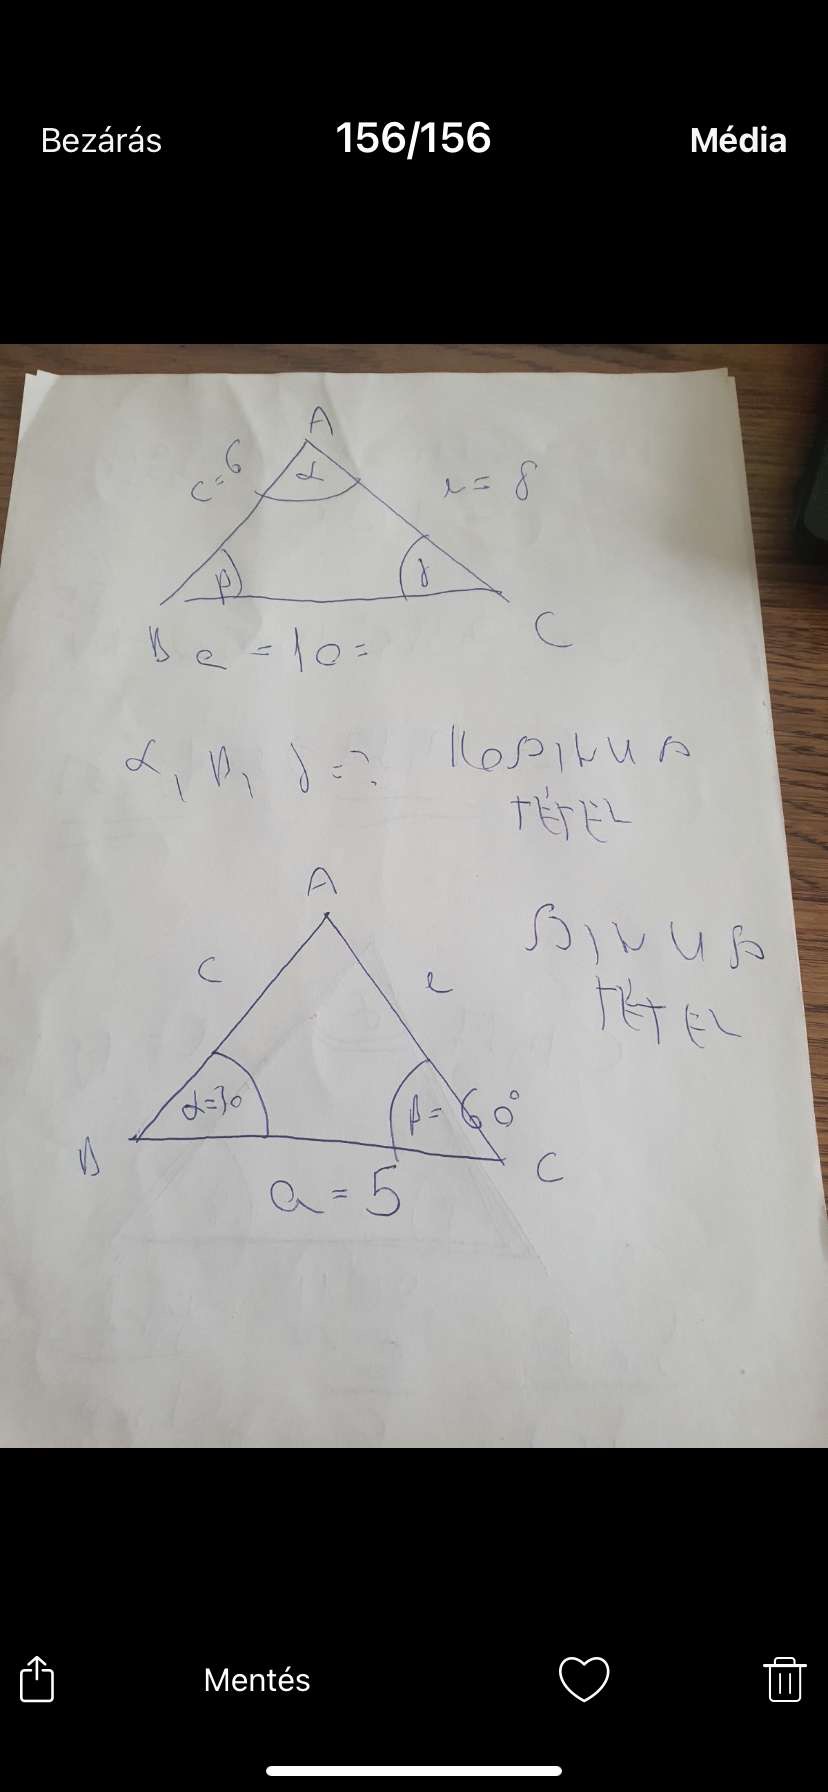 Bezárás 156/156 Média
A
c=6 α = 8
β γ
B = 10 = C
α, β, γ = ? KOSINUS
TÉTEL
A
SINUS
C
TÉTEL
α=30 β=60°
B C
a = 5
Mentés